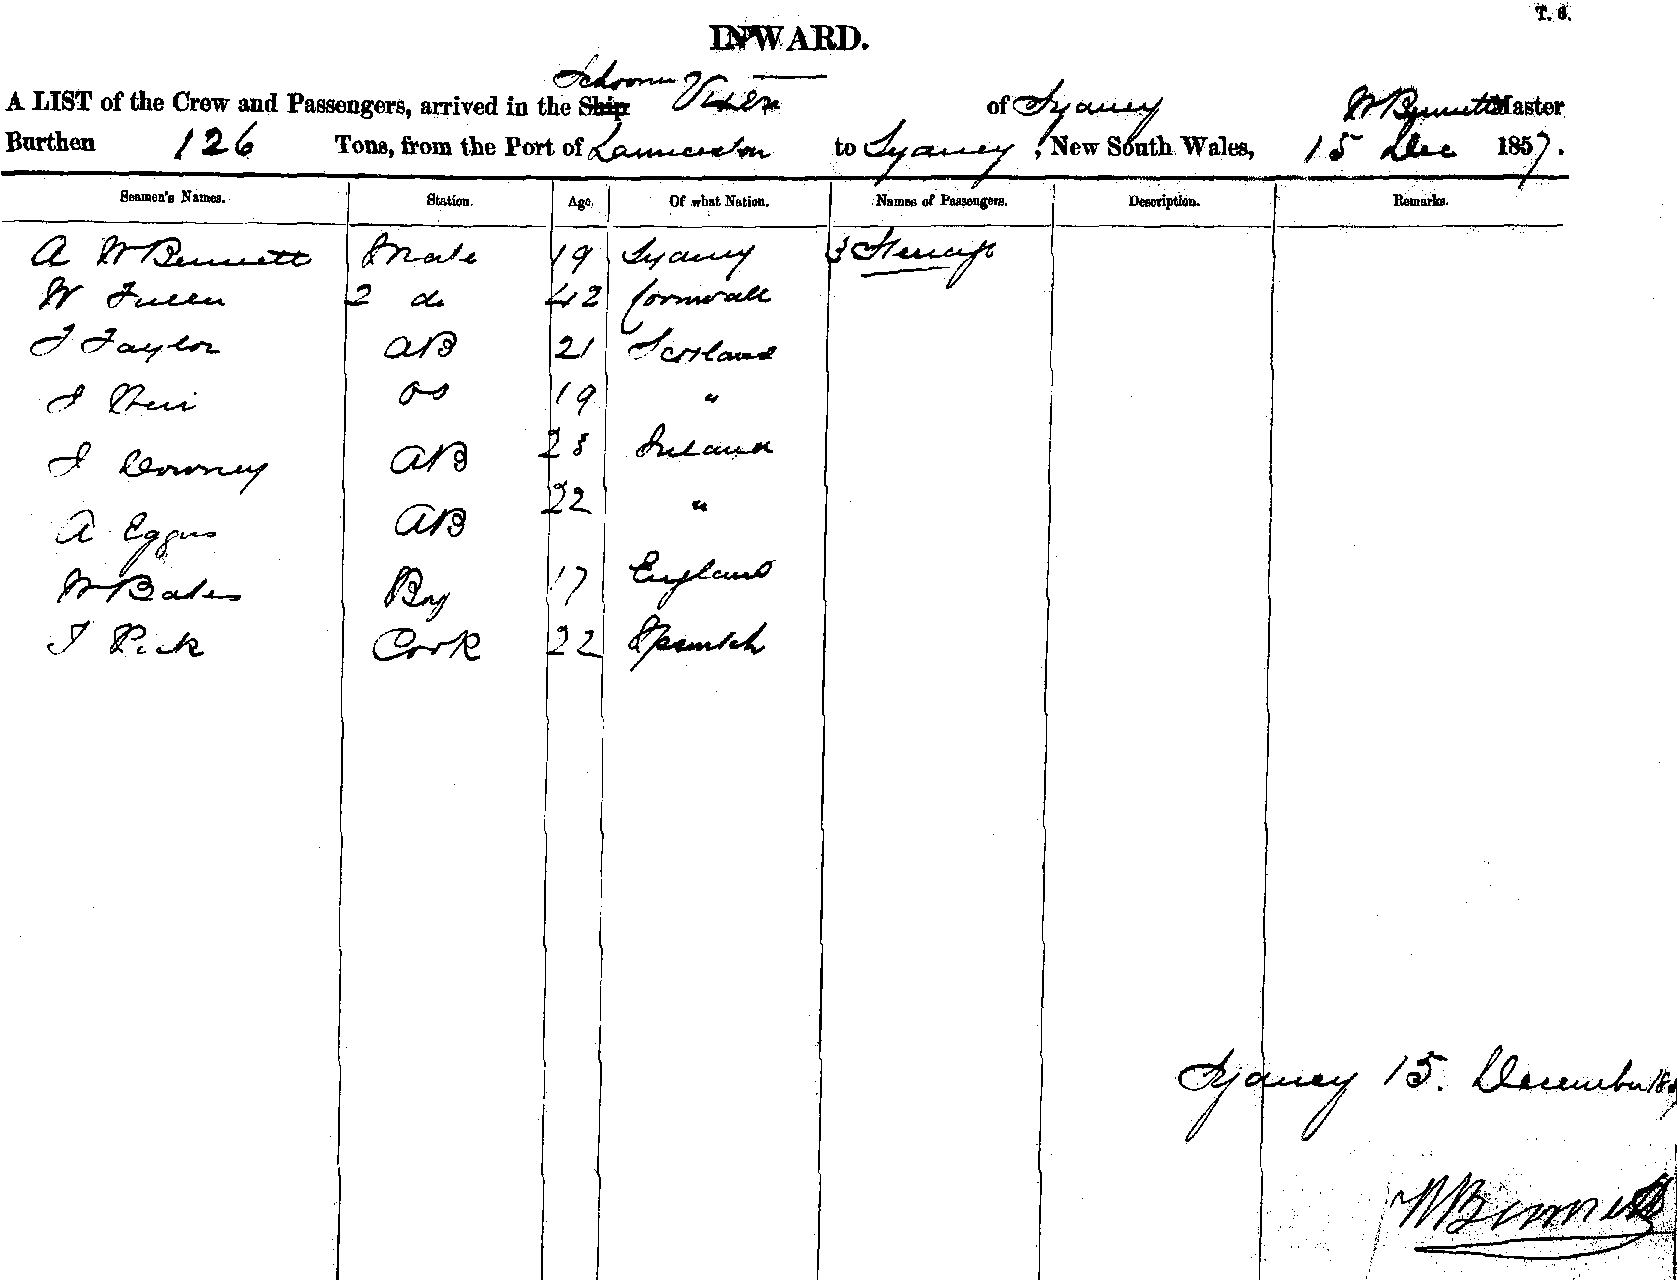 T. 6.
INWARD.
Schooner
A LIST of the Crew and Passengers, arrived in the Ship Vixen of Sydney W Bennett Master
Burthen 126 Tons, from the Port of Launceston to Sydney, New South Wales, 15 Dec 1857.
Seamen's Names. Station. Age. Of what Nation. Names of Passengers. Description. Remarks.
A W Bennett Mate 19 Sydney 3 Steerage
W 2 do 42 Cornwall
J Taylor AB 21 Scotland
J OS 19 "
J Downey AB 28 Ireland
A Eggus AB 22 "
W Bates Boy 17 England
J Pick Cook 22 Ipswich
Sydney 15. December 1857
W Bennett